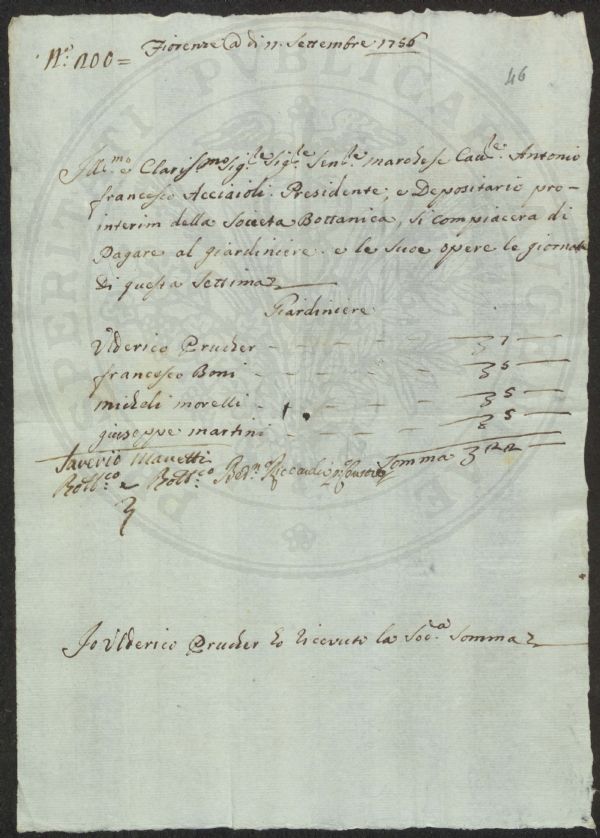 Nº: 200 = Fiorenze @ di 11. Settembre 1756
46
Ill.mo e Clariss.mo Sig.le Sig.le Sen.le Marchese Caul.le Antonio
francesco Acciaioli Presidente, e Depositario pro-
interim della Societa Bottanica, si compiacera di
Pagare al giardiniere e le suoe opere le giornate
di questa settima
Giardiniere
Ulderico Prucher - - - - - 7 -
francesco Boni - - - - - 5 -
micheli morelli - - - - 5 -
giuseppe martini - - - - 5 -
Saverio Manetti Somma 22
Bott.co e Bott.co Riccardi
Io Ulderico Prucher ho ricevuto la Sod.a Somma